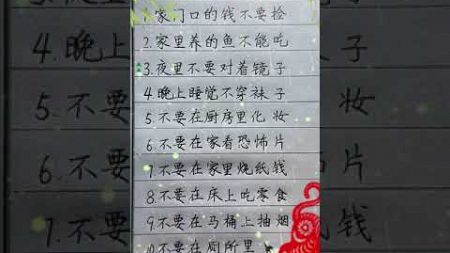 1.家门口的钱不要捡
2.家里养的鱼不能吃
3.夜里不要对着镜子
4.晚上睡觉不穿袜子
5.不要在厨房里化妆
6.不要在家看恐怖片
7.不要在家里烧纸钱
8.不要在床上吃零食
9.不要在马桶上抽烟
10.不要在厕所里